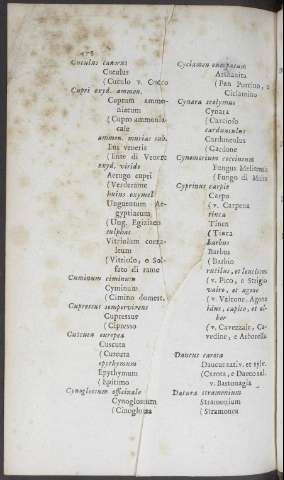 478
Cuculus canorus
Cuculus
(Cuculo v. Cucco
Cupri oxyd. ammon.
Cuprum ammo-
niatum
(Cupro ammonia-
cale
ammon. murias sub.
Ens veneris
(Ente di Venere
oxyd. viride
Aerugo cupri
(Verderame
huius oxymel
Unguentum Ae-
gyptiacum
(Ung. Egiziaco
sulphas
Vitriolum coeru-
leum
(Vitriolo, o Sol-
fato di rame
Cuminum ciminum
Cyminum
(Cimino domest.
Cupressus sempervirens
Cupressus
(Cipresso
Cuscuta europea
Cuscuta
(Cuscuta
epythymum
Epythymum
(Epitimo
Cynoglossum officinale
Cynoglossum
(Cinoglossa
Cyclamen europaeum
Arthanita
(Pan Porcino, o
Ciclamino
Cynara scolymus
Cynara
(Carciofo
cardunculus
Cardunculus
(Cardone
Cynomorium coccineum
Fungus Melitensis
(Fungo di Malta
Cyprinus carpio
Carpo
(v. Carpena
tinca
Tinca
(Tinca
barbus
Barbus
(Barbio
rutilus, et leuciscus
(v. Pico, e Strigio
(v. Vairone. Agone
(v. Cavezzale, Ca-
vedine, e Arborella
Daucus carota
Daucus sativ. et sylv.
(Carota, e Dauco sal.
v. Bastonagia
Datura stramonium
Stramonium
(Stramoneo.